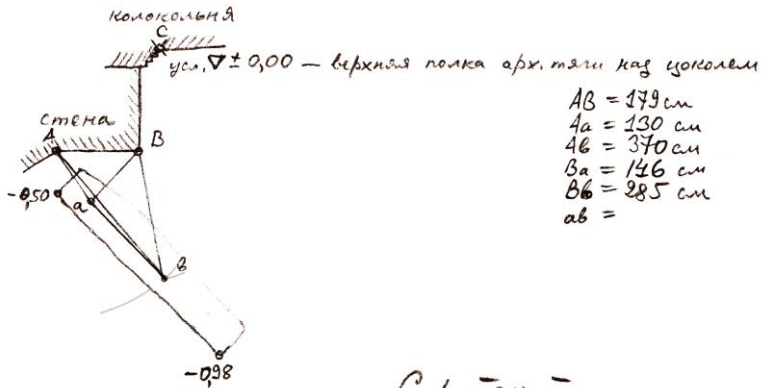 колокольня
C
усл. ∇ ± 0,00 — верхняя полка арх. тяги над цоколем
стена
A
B
-0,50
a
в
-0,98
AB = 179 см
Aa = 130 см
Aв = 370 см
Ba = 146 см
Bв = 285 см
aв =